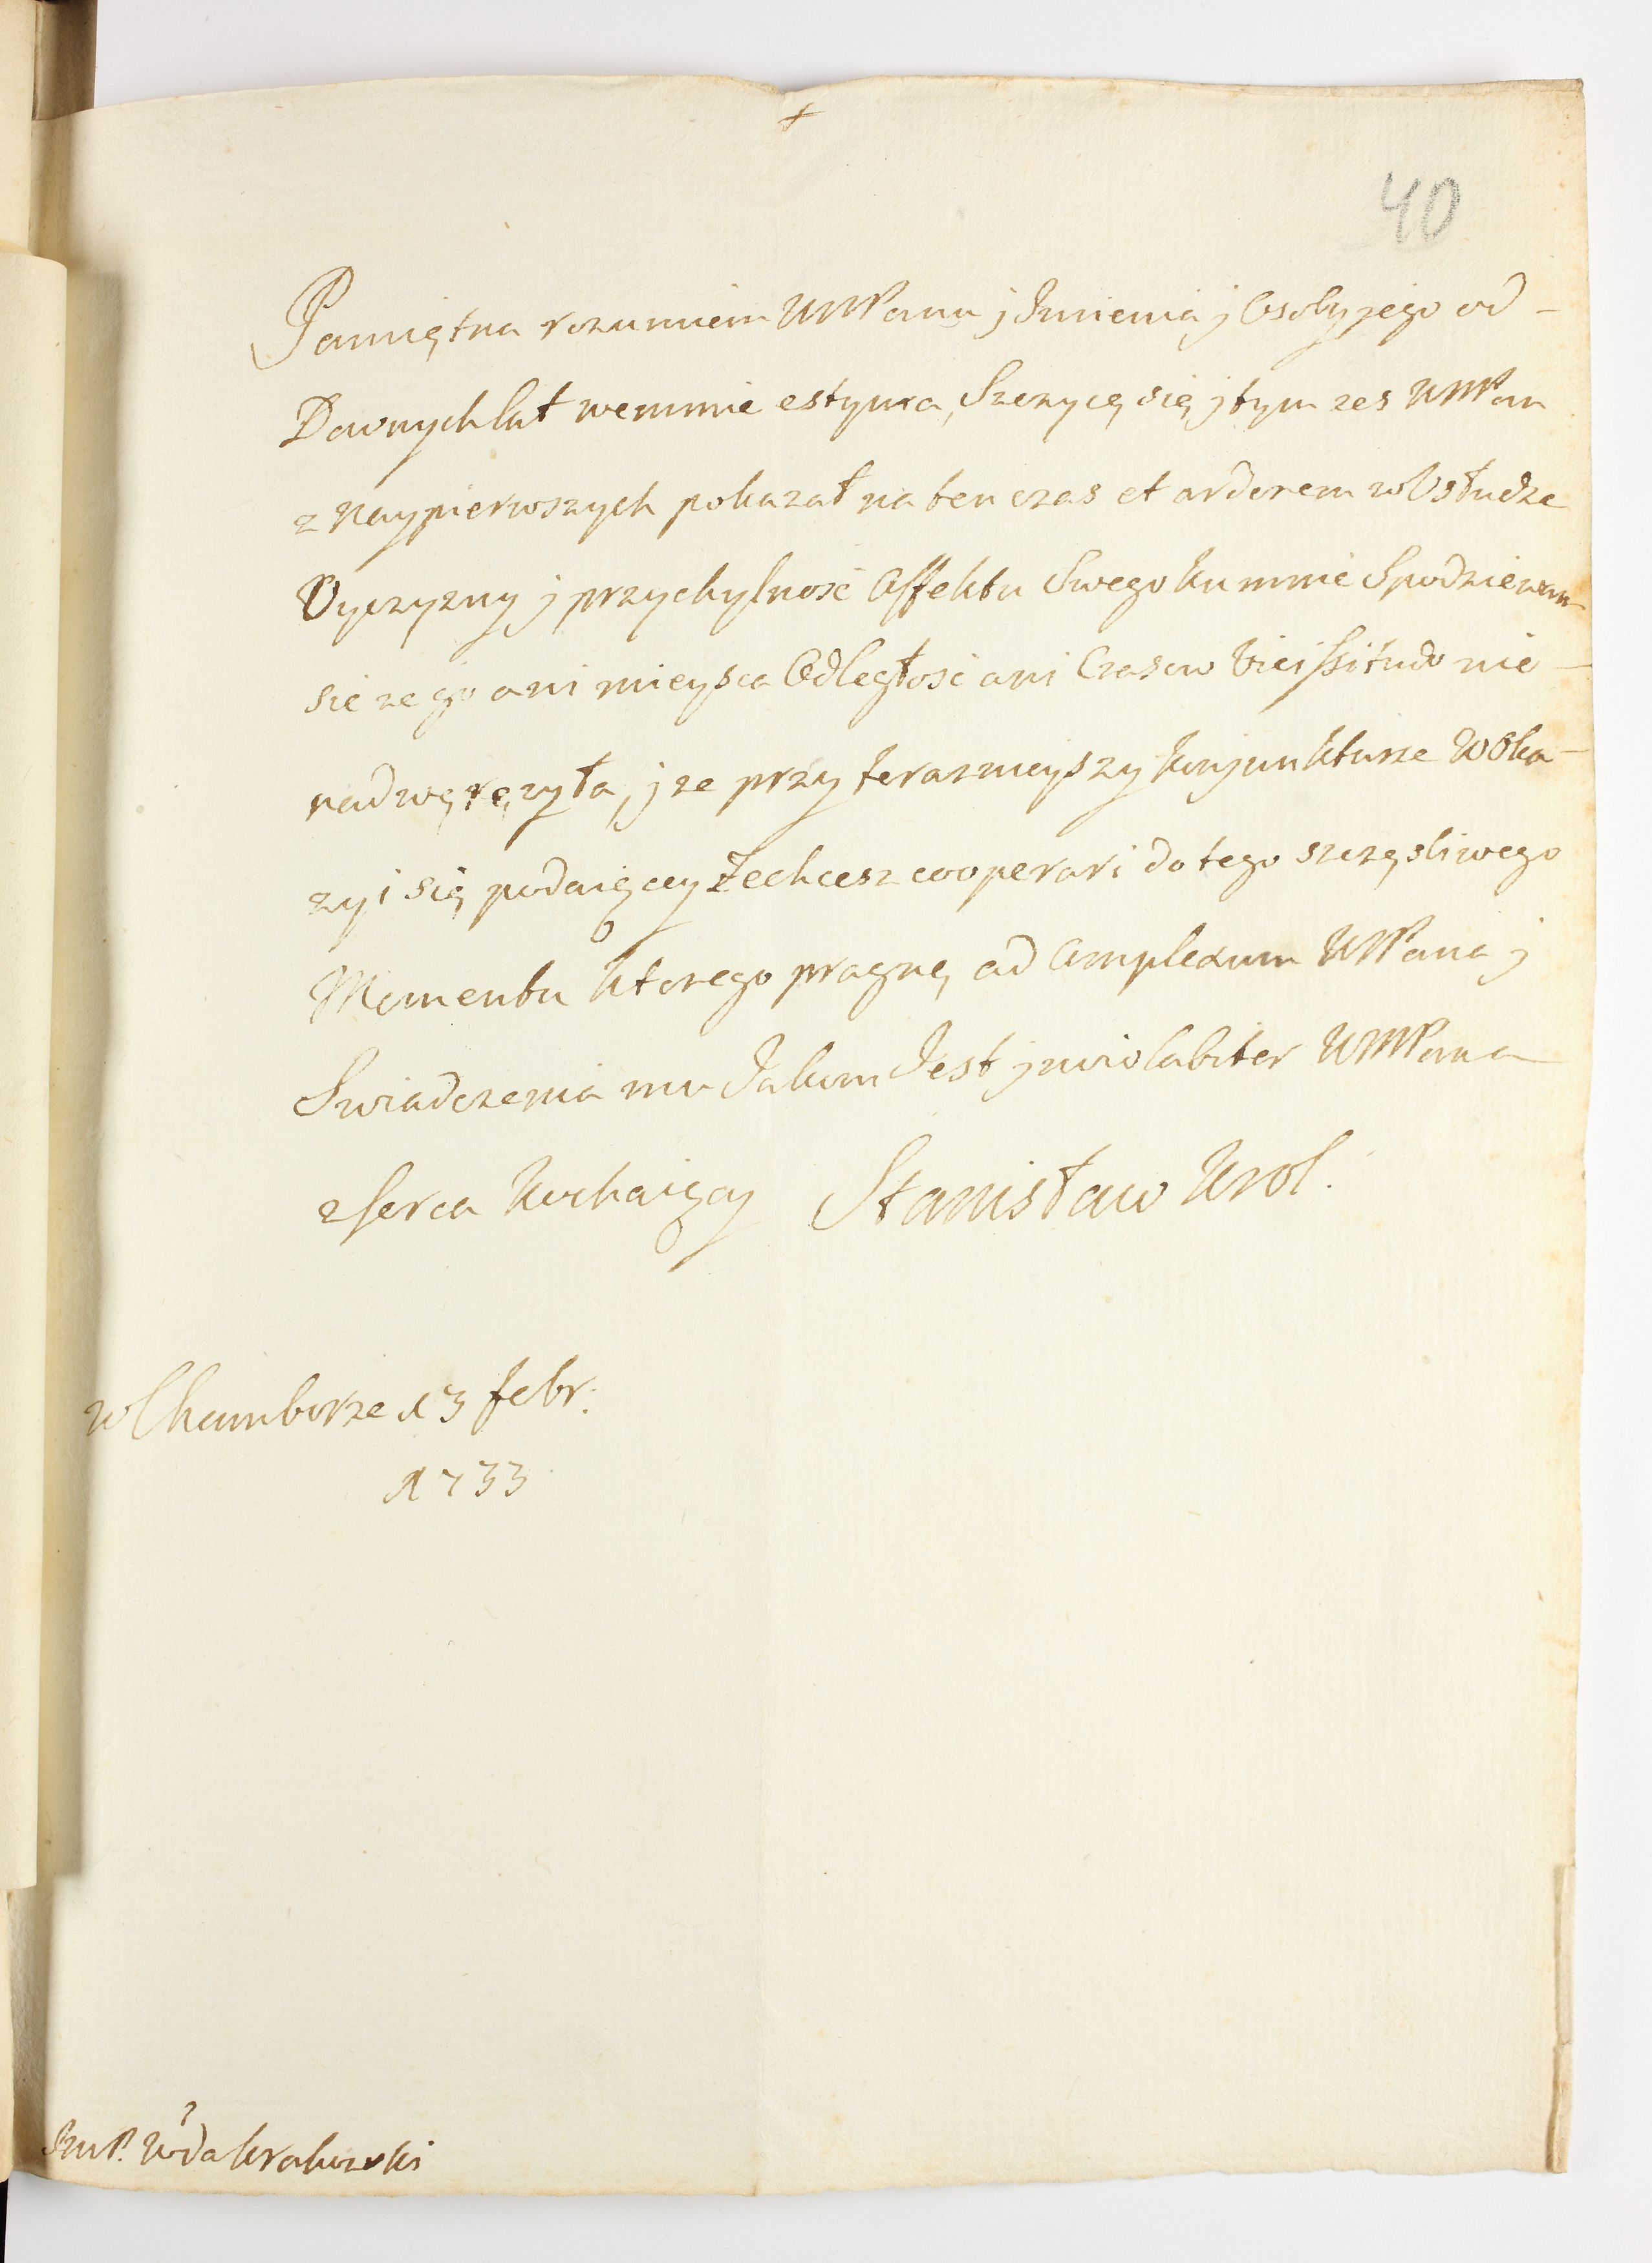 40
Pamiętna rozumiem WMPanu j Jmienia j Osoby jego od -
Dawnych lat wemnie estyma, Szczycę się j tym zes WMPan
z Naypierwszych pokazał na ten czas et ardorem w Usłudze
Oyczyzny j przychylność Affektu Swego ku mnie Spodziewam
sie ze jo ani mieysca Odległość ani Czasow Vicissitudo nie -
nadwęręzyła, j ze przy teraznieyszy konjunkturze W Oka -
zyi się podaięcey Zechcesz cooperari do tego szczęsliwego
Momentu ktorego pragnę ad Amplexum WMPana j
Swiadczenia mu Jakom Jest jnviolabiter WMPana
z serca kochaięcy Stanisław Krol.
w Chamborze 13 febr:
1733
JmP. Wda krakowski